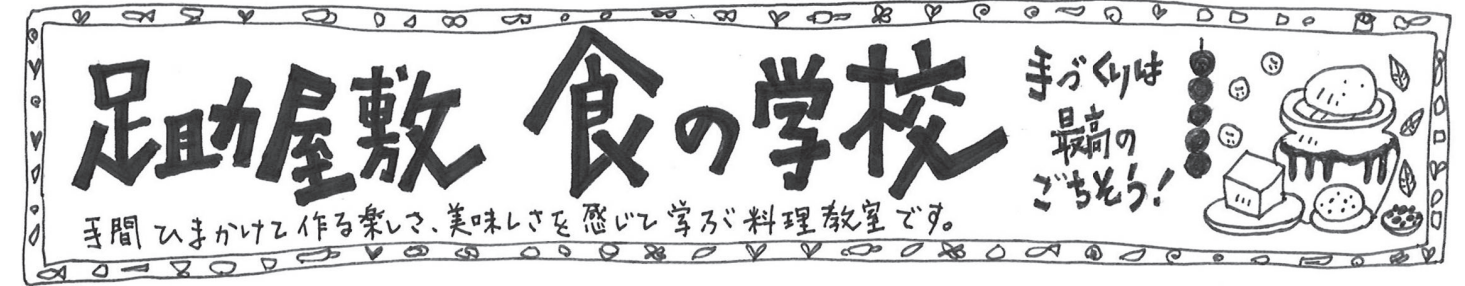 足助屋敷 食の学校
手間ひまかけて作る楽しさ、美味しさを感じて学ぶ料理教室です。
手づくりは
最高の
ごちそう!